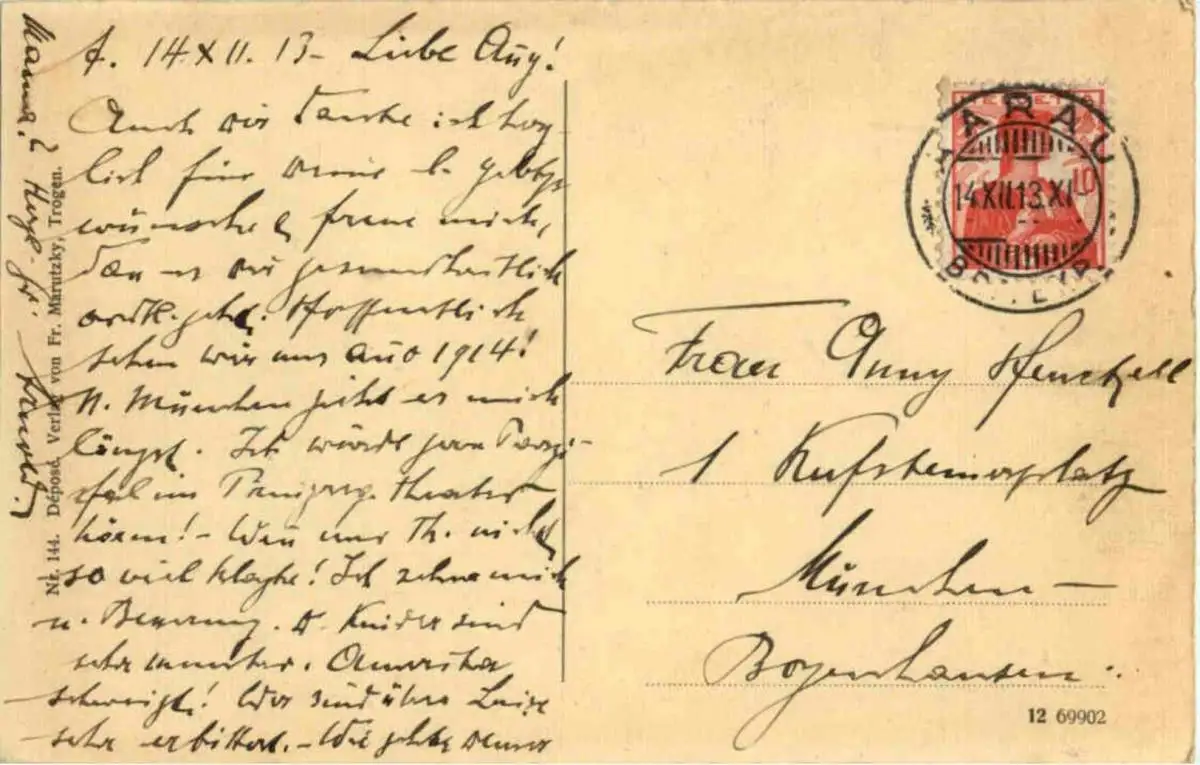 A. 14 XII. 13 - Liebe Any!
Auch Dir danke ich herz-
lich für Deine l. Gebtgs
wünsche & freue mich,
daß es Dir gesundheitlich
ordtl. geht. Hoffentlich
sehen wir uns Ao 1914!
N. München zieht es mich
längst. Ich würde gern Parzi-
fal im Prinzreg. theater
hören! - Wen nur Th. nicht
so viel klagte! Ich sehne mich
n. Besserung. D. Kinder sind
sehr munter. Amerika
schweigt! Wir sind über Luise
sehr erbittert. - Wie geht's Deiner
Mama? Herzl. Gr.
Nr. 144. Déposé. Verlag von Fr. Marutzky, Trogen.
HELVETIA
10
AARAU
14.XII.13.XI
Frau Anny
1 Kufsteinerplatz
München -
Bogenhausen.
12 69902